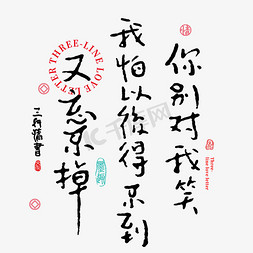 你别对我笑
我怕以後得不到
又忘不掉
三行情書
THREE-LINE LOVE LETTER
Three-line love letter
情
千库网